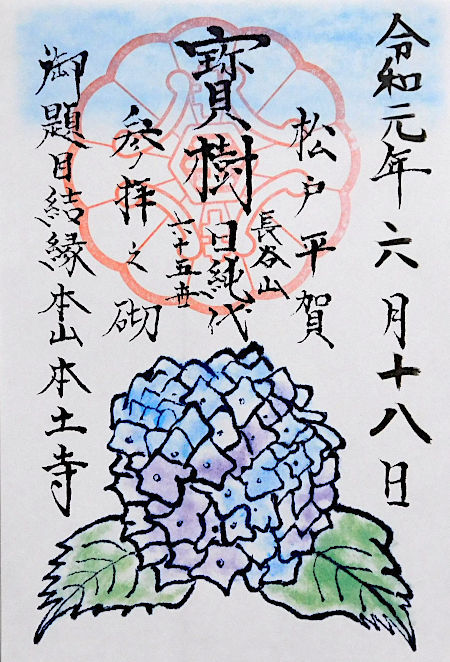 令和元年六月十八日
松戸平賀
長谷山
寳樹
日純代
六十五世
参拝之砌
御題目結縁本山本土寺